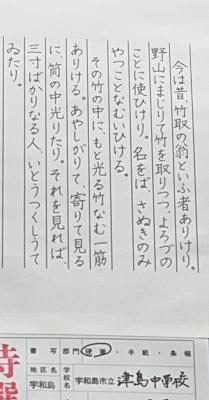 今は昔、竹取の翁といふ者ありけり。
野山にまじりて竹を取りつつ、よろづの
ことに使ひけり。名をば、さぬきのみ
やつことなむいひける。
その竹の中に、もと光る竹なむ一筋
ありける。あやしがりて、寄りて見る
に、筒の中光りたり。それを見れば、
三寸ばかりなる人、いとうつくしうて
ゐたり。
特選
書写部門 硬筆・手紙・条幅
地区名 宇和島
学校名 宇和島市立 津島中学校